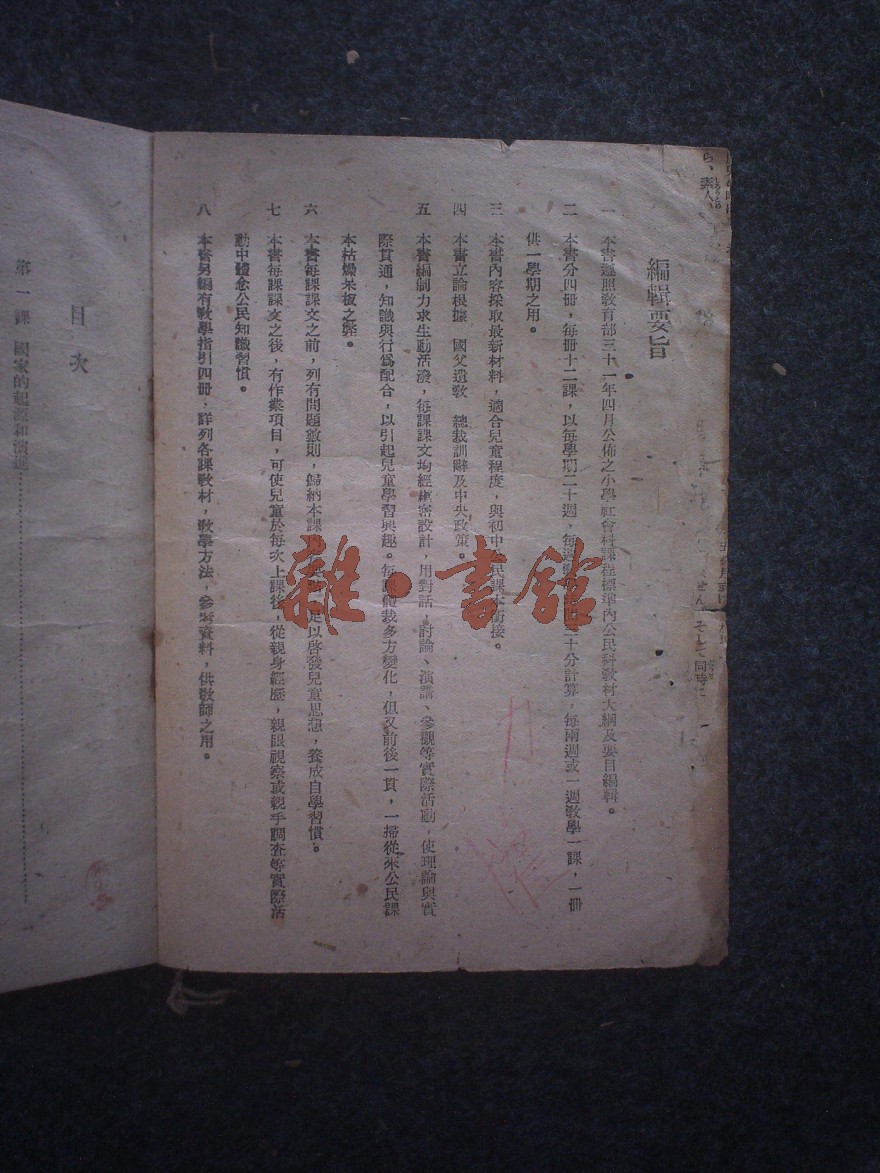 編輯要旨
一 本書遵照教育部三十一年四月公佈之小學社會科課程標準內公民科教材大綱及要目編輯。
二 本書分四冊，每冊十二課，以每學期二十週，每週 十分計算，每兩週或一週教學一課，一冊
供一學期之用。
三 本書內容採取最新材料，適合兒童程度，與初中公民課本銜接。
四 本書立論根據 國父遺教 總裁訓辭及中央政策。
五 本書編制力求生動活潑，每課課文均經縝密設計，用對話，討論、演講、參觀等實際活動，使理論與實
際貫通，知識與行爲配合，以引起兒童學習興趣。每 體裁多方變化，但又前後一貫，一掃從來公民課
本枯燥呆板之弊。
六 本書每課課文之前，列有問題數則，歸納本課 足以啓發兒童思想，養成自學習慣。
七 本書每課課文之後，有作業項目，可使兒童於每次上課後，從親身經歷，親眼視察或親手調查等實際活
動中體念公民知識習慣。
八 本書另編有敎學指引四冊，詳列各課敎材，敎學方法，參考資料，供敎師之用。
目次
第一課 國家的起源和演進
雜·書館